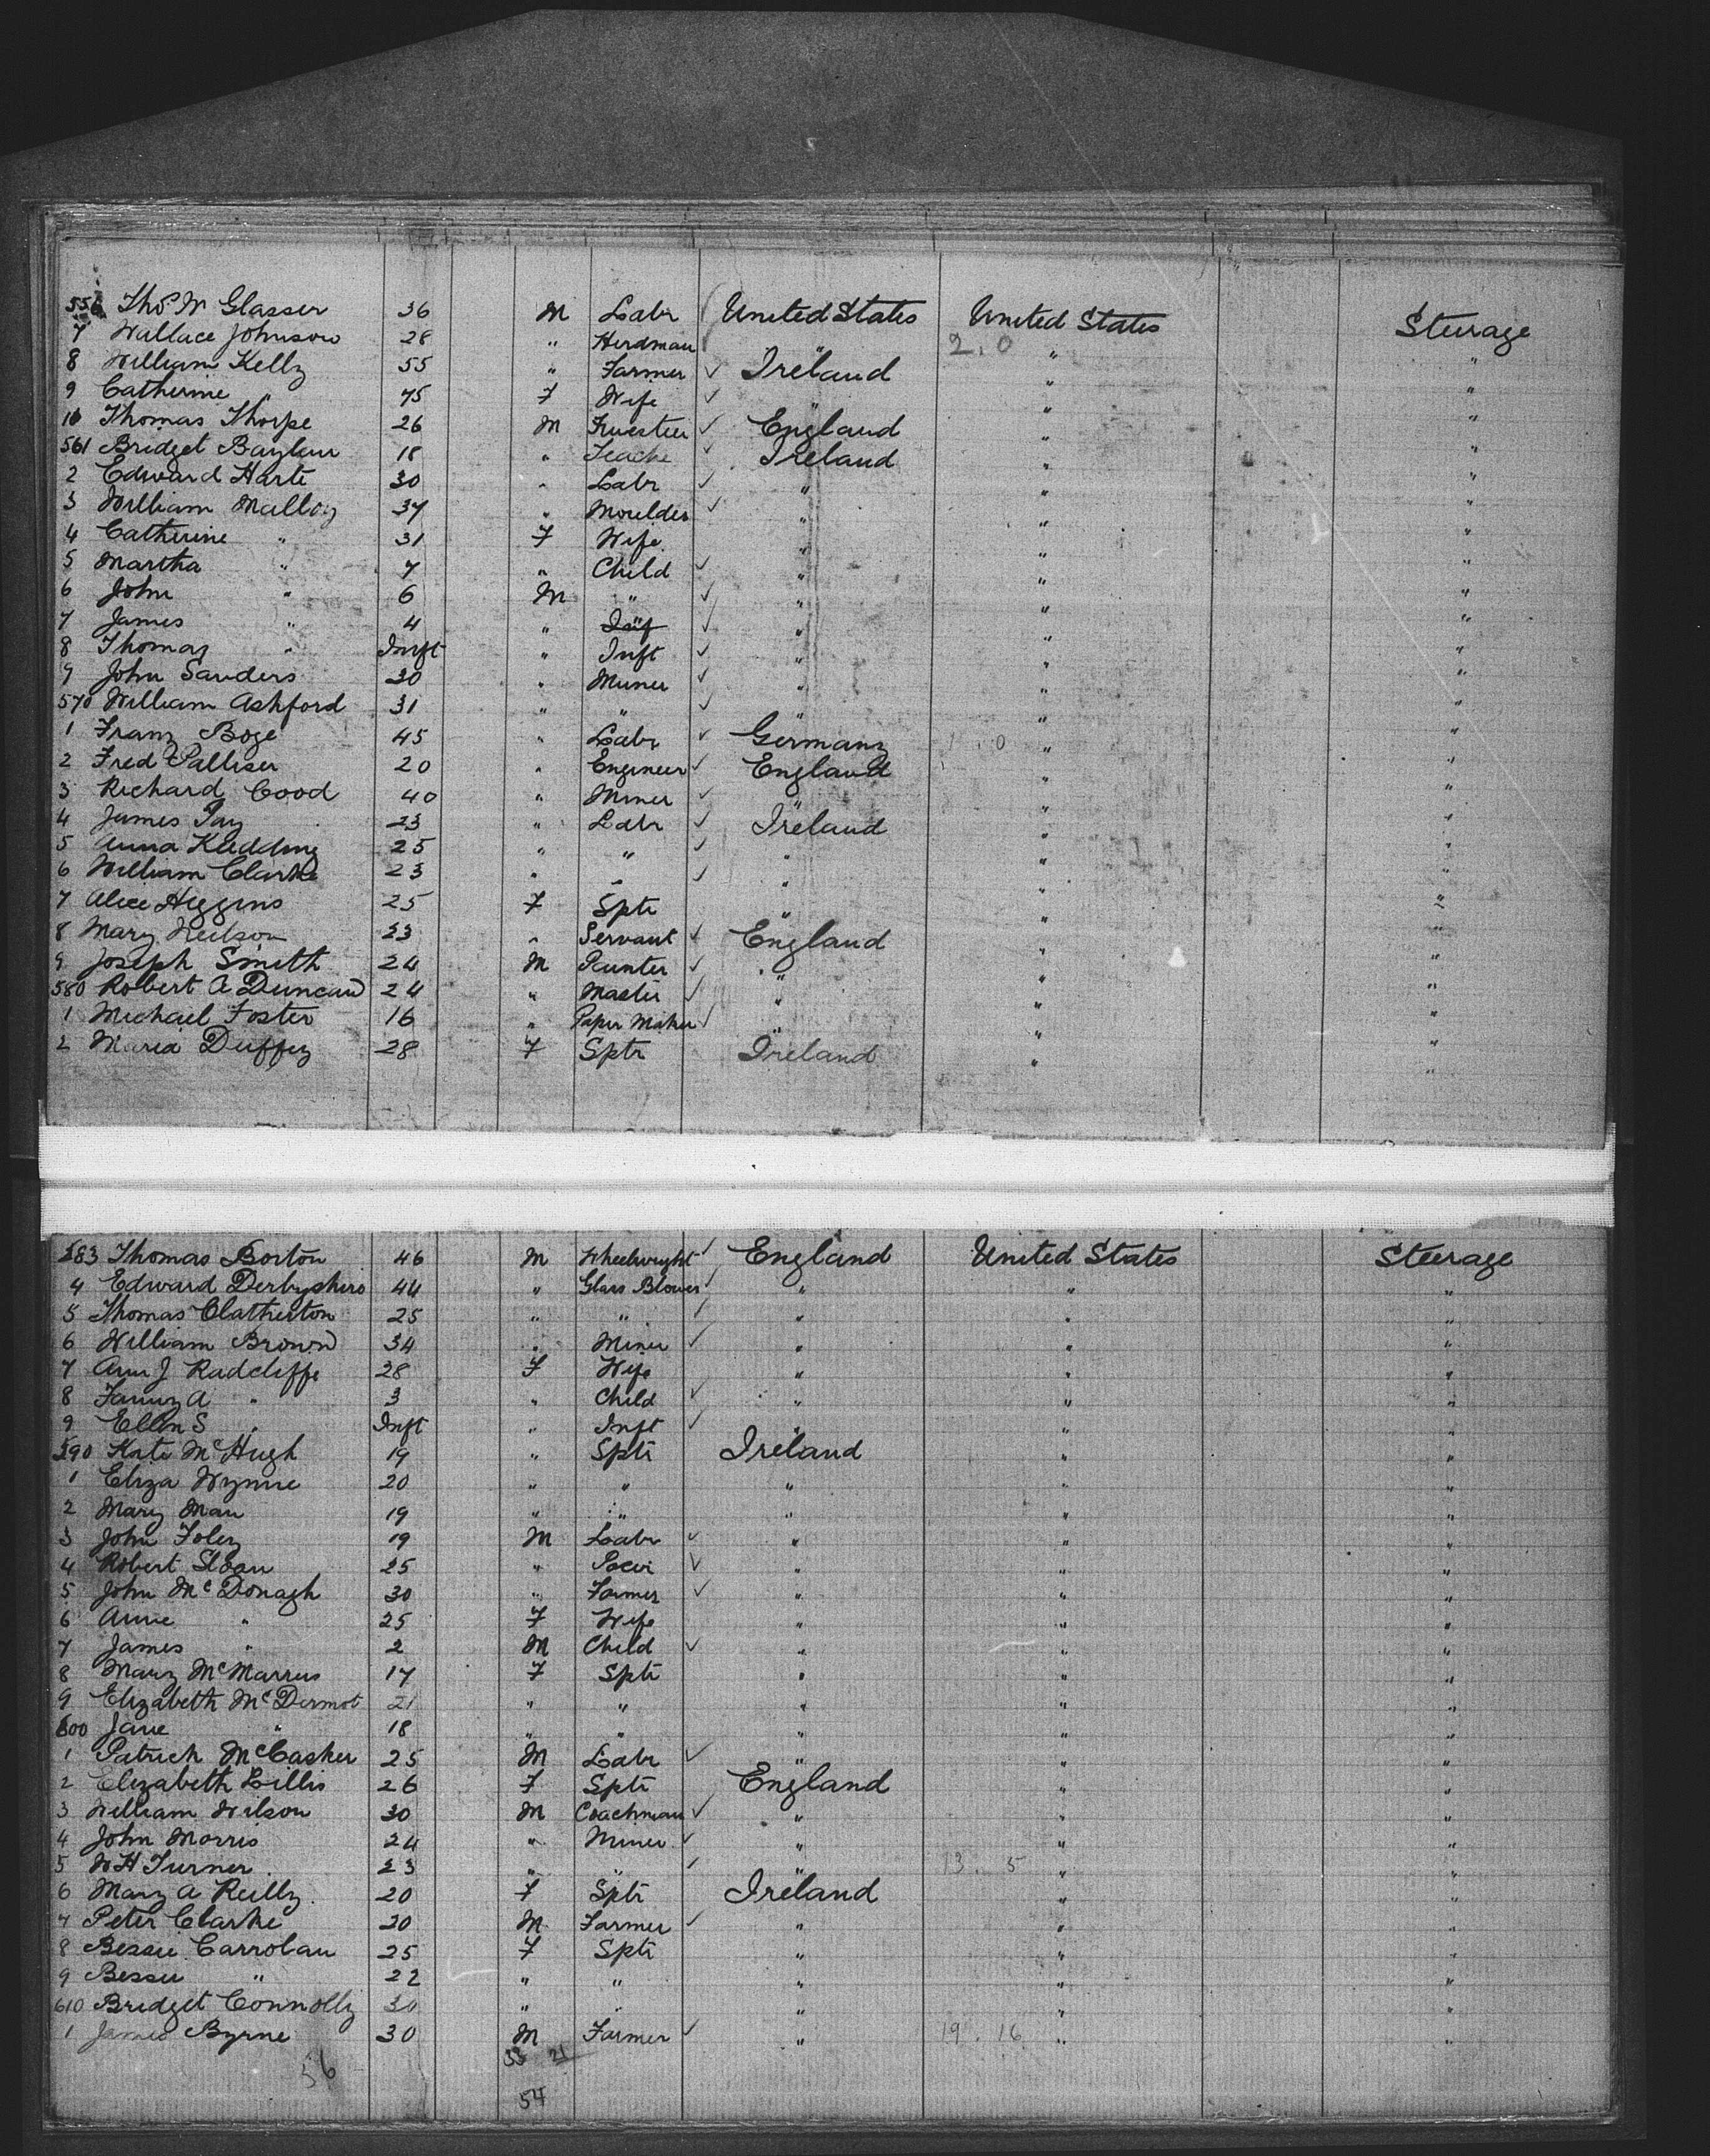 556 Thos W Glasser 36 M Labr United States United States Steerage
7 Wallace Johnson 28 " Herdman " 2.0 " "
8 William Kelly 55 " Farmer ✓ Ireland " "
9 Catherine " 75 F Wife ✓ " " "
10 Thomas Thorpe 26 M ✓ England " "
561 Bridget 18 " Teache ✓ Ireland " "
2 Edward Harte 30 " Labr ✓ " " "
3 William Malloy 37 " Moulder ✓ " " "
4 Catherine " 31 F Wife " " "
5 Martha " 7 " Child ✓ " " "
6 John " 6 M " ✓ " " "
7 James " 4 " Inf ✓ " " "
8 Thomas " Inft " Inft ✓ " " "
9 John Sanders 30 " Miner ✓ " " "
570 William Ashford 31 " " ✓ " " "
1 Franz Boge 45 " Labr ✓ Germany 1.0 " "
2 Fred Palliser 20 " Engineer ✓ England " "
3 Richard Cood 40 " Miner ✓ " " "
4 James 23 " Labr ✓ Ireland " "
5 Anna 25 " " ✓ " " "
6 William Clarke 23 " " ✓ " " "
7 Alice Higgins 25 F Sptr " " "
8 Mary Neilson 23 " Servant ✓ England " "
9 Joseph Smith 24 M Painter ✓ " " "
580 Robert A Duncan 24 " Master ✓ " " "
1 Michael Foster 16 " Paper Maker ✓ " " "
2 Maria Duffy 28 F Sptr Ireland " "
583 Thomas Borton 46 M Wheelwright ✓ England United States Steerage
4 Edward Derbyshire 44 " Glass Blower ✓ " " "
5 Thomas Clatherton 25 " " ✓ " " "
6 William Brown 34 " Miner ✓ " " "
7 Ann J Radcliffe 28 F Wife " " "
8 Fanny A " 3 " Child ✓ " " "
9 Ellen S " Inft " Inft ✓ " " "
590 Kate McHugh 19 " Sptr Ireland " "
1 Eliza Wynne 20 " " " " "
2 Mary Man 19 " " " " "
3 John Foley 19 M Labr ✓ " " "
4 Robert Sloan 25 " ✓ " " "
5 John McDonagh 30 " Farmer ✓ " " "
6 Annie " 25 F Wife " " "
7 James " 2 M Child ✓ " " "
8 Mary McMarrus 17 F Sptr " " "
9 Elizabeth McDermot 21 " " " " "
600 Jane " 18 " " " " "
1 Patrick McCasker 25 M Labr ✓ " " "
2 Elizabeth Lillis 26 F Sptr England " "
3 William Wilson 30 M Coachman ✓ " " "
4 John Morris 24 " Miner ✓ " " "
5 W H Turner 23 " " ✓ " 13.5 " "
6 Mary A Reilly 20 F Sptr Ireland " "
7 Peter Clarke 20 M Farmer ✓ " " "
8 Bessie Carrolan 25 F Sptr " " "
9 Bessie " 22 " " " " "
610 Bridget Connolly 30 " " " " "
1 James Byrne 30 M Farmer ✓ " 19.16 " "
33 21
56
54